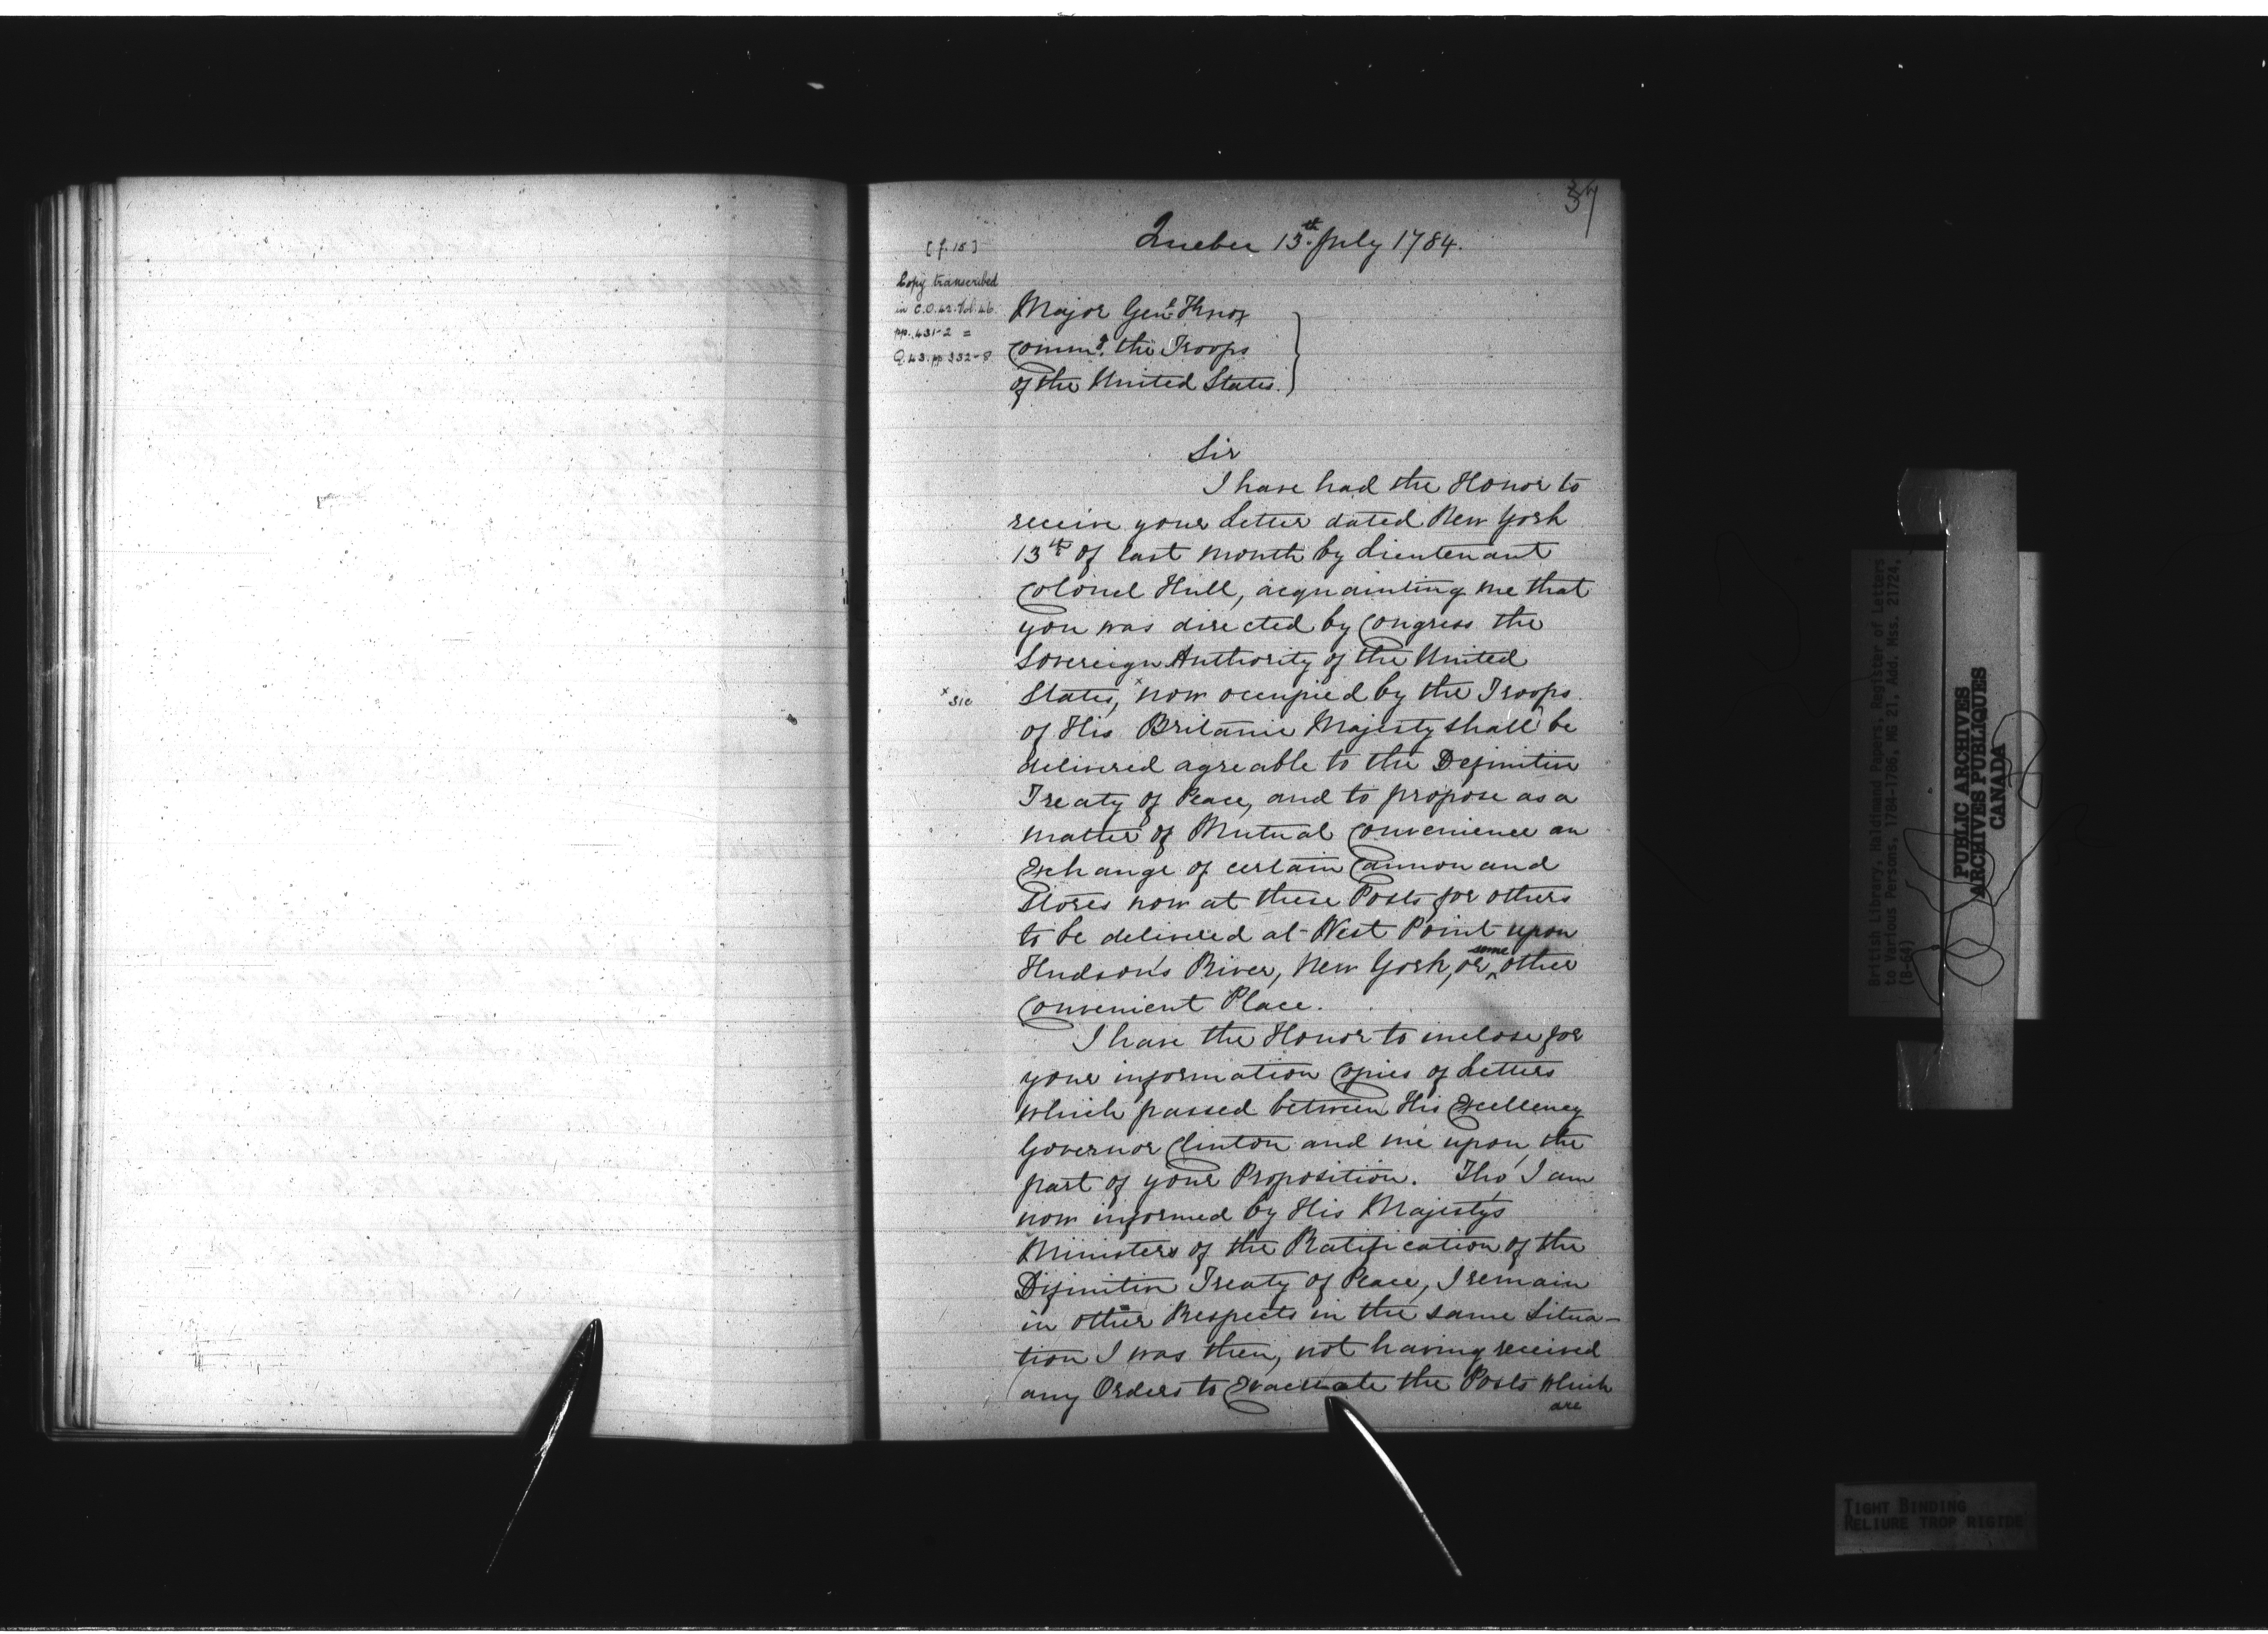 37
Quebec 13th July 1784.
[f. 18]
Copy transcribed
in C.O. 42. Vol. 46.
pp. 431-2 =
Q. 43. pp. 332-8
Major Genl Knox
Commg. the Troops
of the United States.
Sir
I have had the Honor to
receive your Letter dated New York
13th of last month by Lieutenant
Colonel Hull, acquainting me that
you was directed by Congress the
Sovereign Authority of the United
x sic
States, x now occupied by the Troops
of His Britanic Majesty shall be
delivered agreable to the Definitive
Treaty of Peace, and to propose as a
matter of Mutual Convenience an
Exchange of certain Cannon and
Stores now at these Posts for others
to be delivered at West Point upon
Hudson's River, New York, or some other
Convenient Place.
I have the Honor to inclose for
your information Copies of Letters
which passed between His Excellency
Governor Clinton and me upon the
part of your Proposition. Tho' I am
now informed by His Majesty's
Ministers of the Ratification of the
Difinitive Treaty of Peace, I remain
in other Respects in the same Situa-
tion I was then, not having received
any Orders to Evacuate the Posts which
are
British Library, Haldimand Papers, Register of Letters
to Various Persons, 1784-1786, MG 21, Add. Mss. 21724,
(B-64)
PUBLIC ARCHIVES
ARCHIVES PUBLIQUES
CANADA
TIGHT BINDING
RELIURE TROP RIGIDE